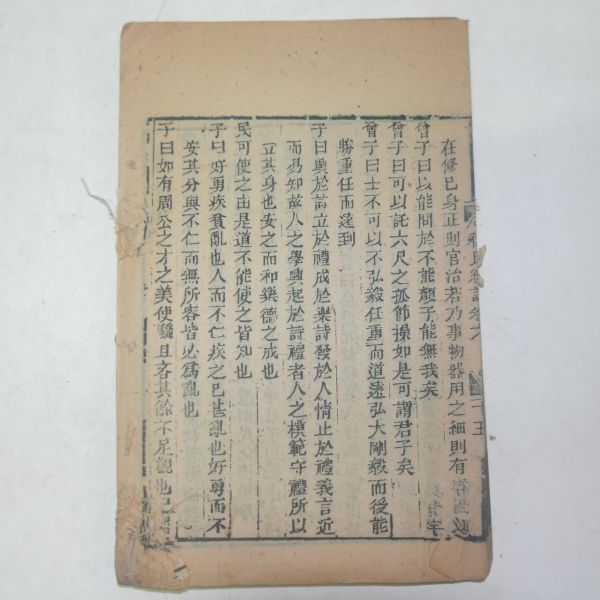 在修己身正則官治若乃事物器用之細則有
曾子曰以能問於不能顏子能無我矣
曾子曰可以託六尺之孤節操如是可謂君子矣
曾子曰士不可以不弘毅任重而道遠弘大剛毅而後能
勝重任而遠到
子曰興於詩立於禮成於樂詩發於人情止於禮義言近
而易知故人之學興起於詩禮者人之模範守禮所以
立其身也安之而和樂德之成也
民可使之由是道不能使之皆知也
子曰好勇疾貧亂也人而不仁疾之已甚亂也好勇而不
安其分與不仁而無所容皆必爲亂也
子曰如有周公之才之美使驕且吝其餘不足觀也已